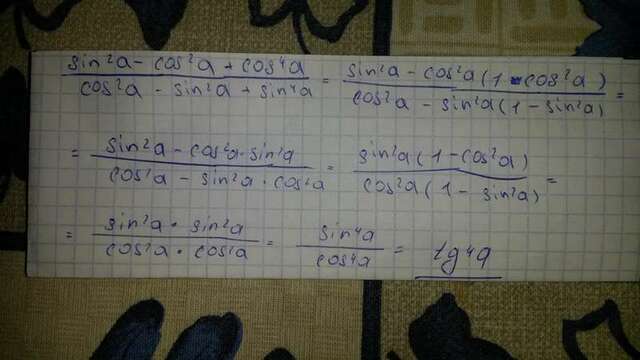 (sin²a - cos²a + cos⁴a)/(cos²a - sin²a + sin⁴a) = (sin²a - cos²a(1 - cos²a))/(cos²a - sin²a(1 - sin²a)) =
= (sin²a - cos²a·sin²a)/(cos²a - sin²a·cos²a) = (sin²a(1 - cos²a))/(cos²a(1 - sin²a)) =
= (sin²a · sin²a)/(cos²a · cos²a) = sin⁴a/cos⁴a = tg⁴a